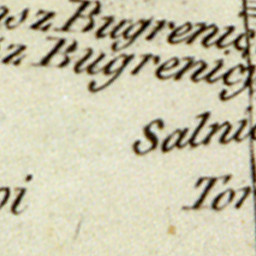 z Bugrenic
z Bugrenicy
Salni
Tor